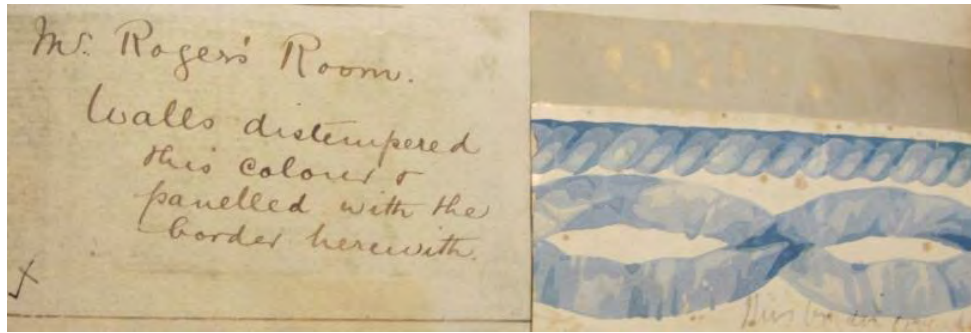 Mr. Roger's Room.
Walls distempered
this colour &
panelled with the
border herewith.
This